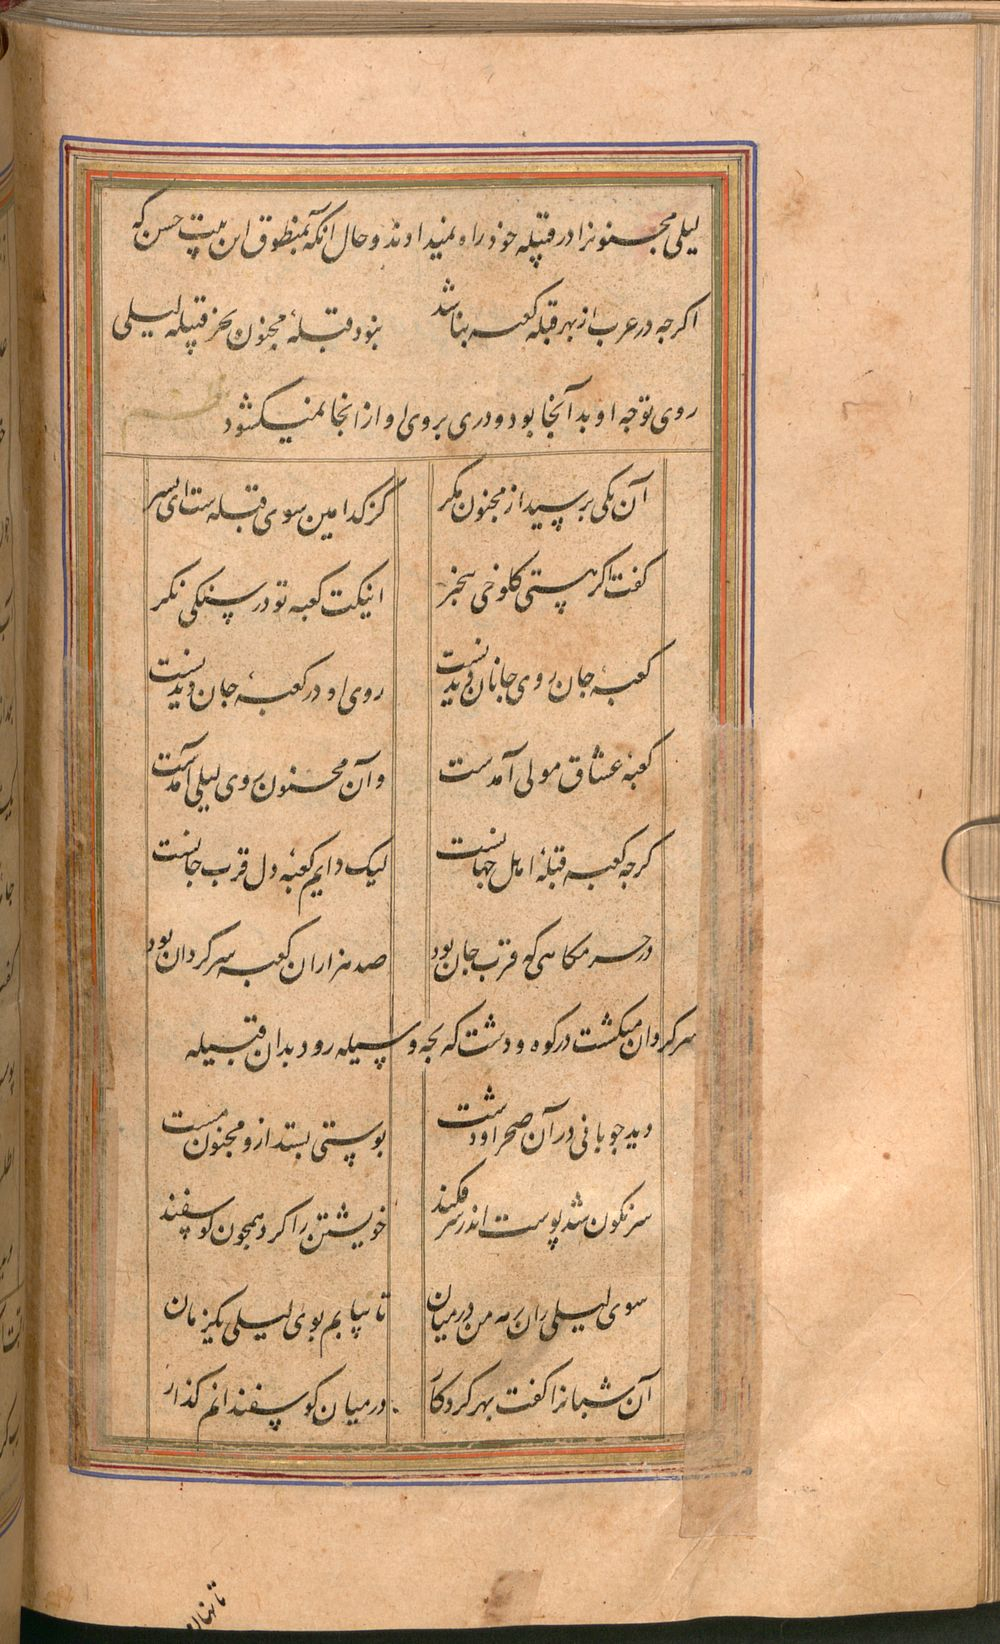 لیلی مجنونرا در قبیله خود راه نمیدادند و حال انکه بمنطوق این بیت حسن که
اکرجه در عرب از بهر قبله کعبه بنا شد نبود قبلهٔ مجنون بجز قبیله لیلی
روی توجه او بدآنجا بود و دری بروی او از انجا نمیکشود
آن یکی برسید از مجنون مکر کز کدامین سوی قبله ست ای بسر
کفت اکر هستی کلوخی بیخبر اینکت کعبه تو در سنکی نکر
کعبهٔ جان روی جانان دیدنست روی او در کعبهٔ جان دیدنست
کعبهٔ عشاق مولی آمدست وآن مجنون روی لیلی آمدست
کرجه کعبه قبلهٔ اهل جهانست لیک دایم کعبهٔ دل قرب جانست
در حرمکاهی که قرب جان بود صد هزاران کعبه سرکردان بود
سرکردان میکشت در کوه و دشت که بجه وسیله رود بدان قبیله
دید جوبانی در آن صحرا و دشت بوستی بستد ازو مجنون مست
سرنکون شد پوست اندر سر فکند خویشتن را کرد همجون کوسفند
سوی لیلی ران رمه من در میان تا بیابم بوی لیلی یکزمان
آن شبانرا کفت بهر کردکار در میان کوسفندانم کذار